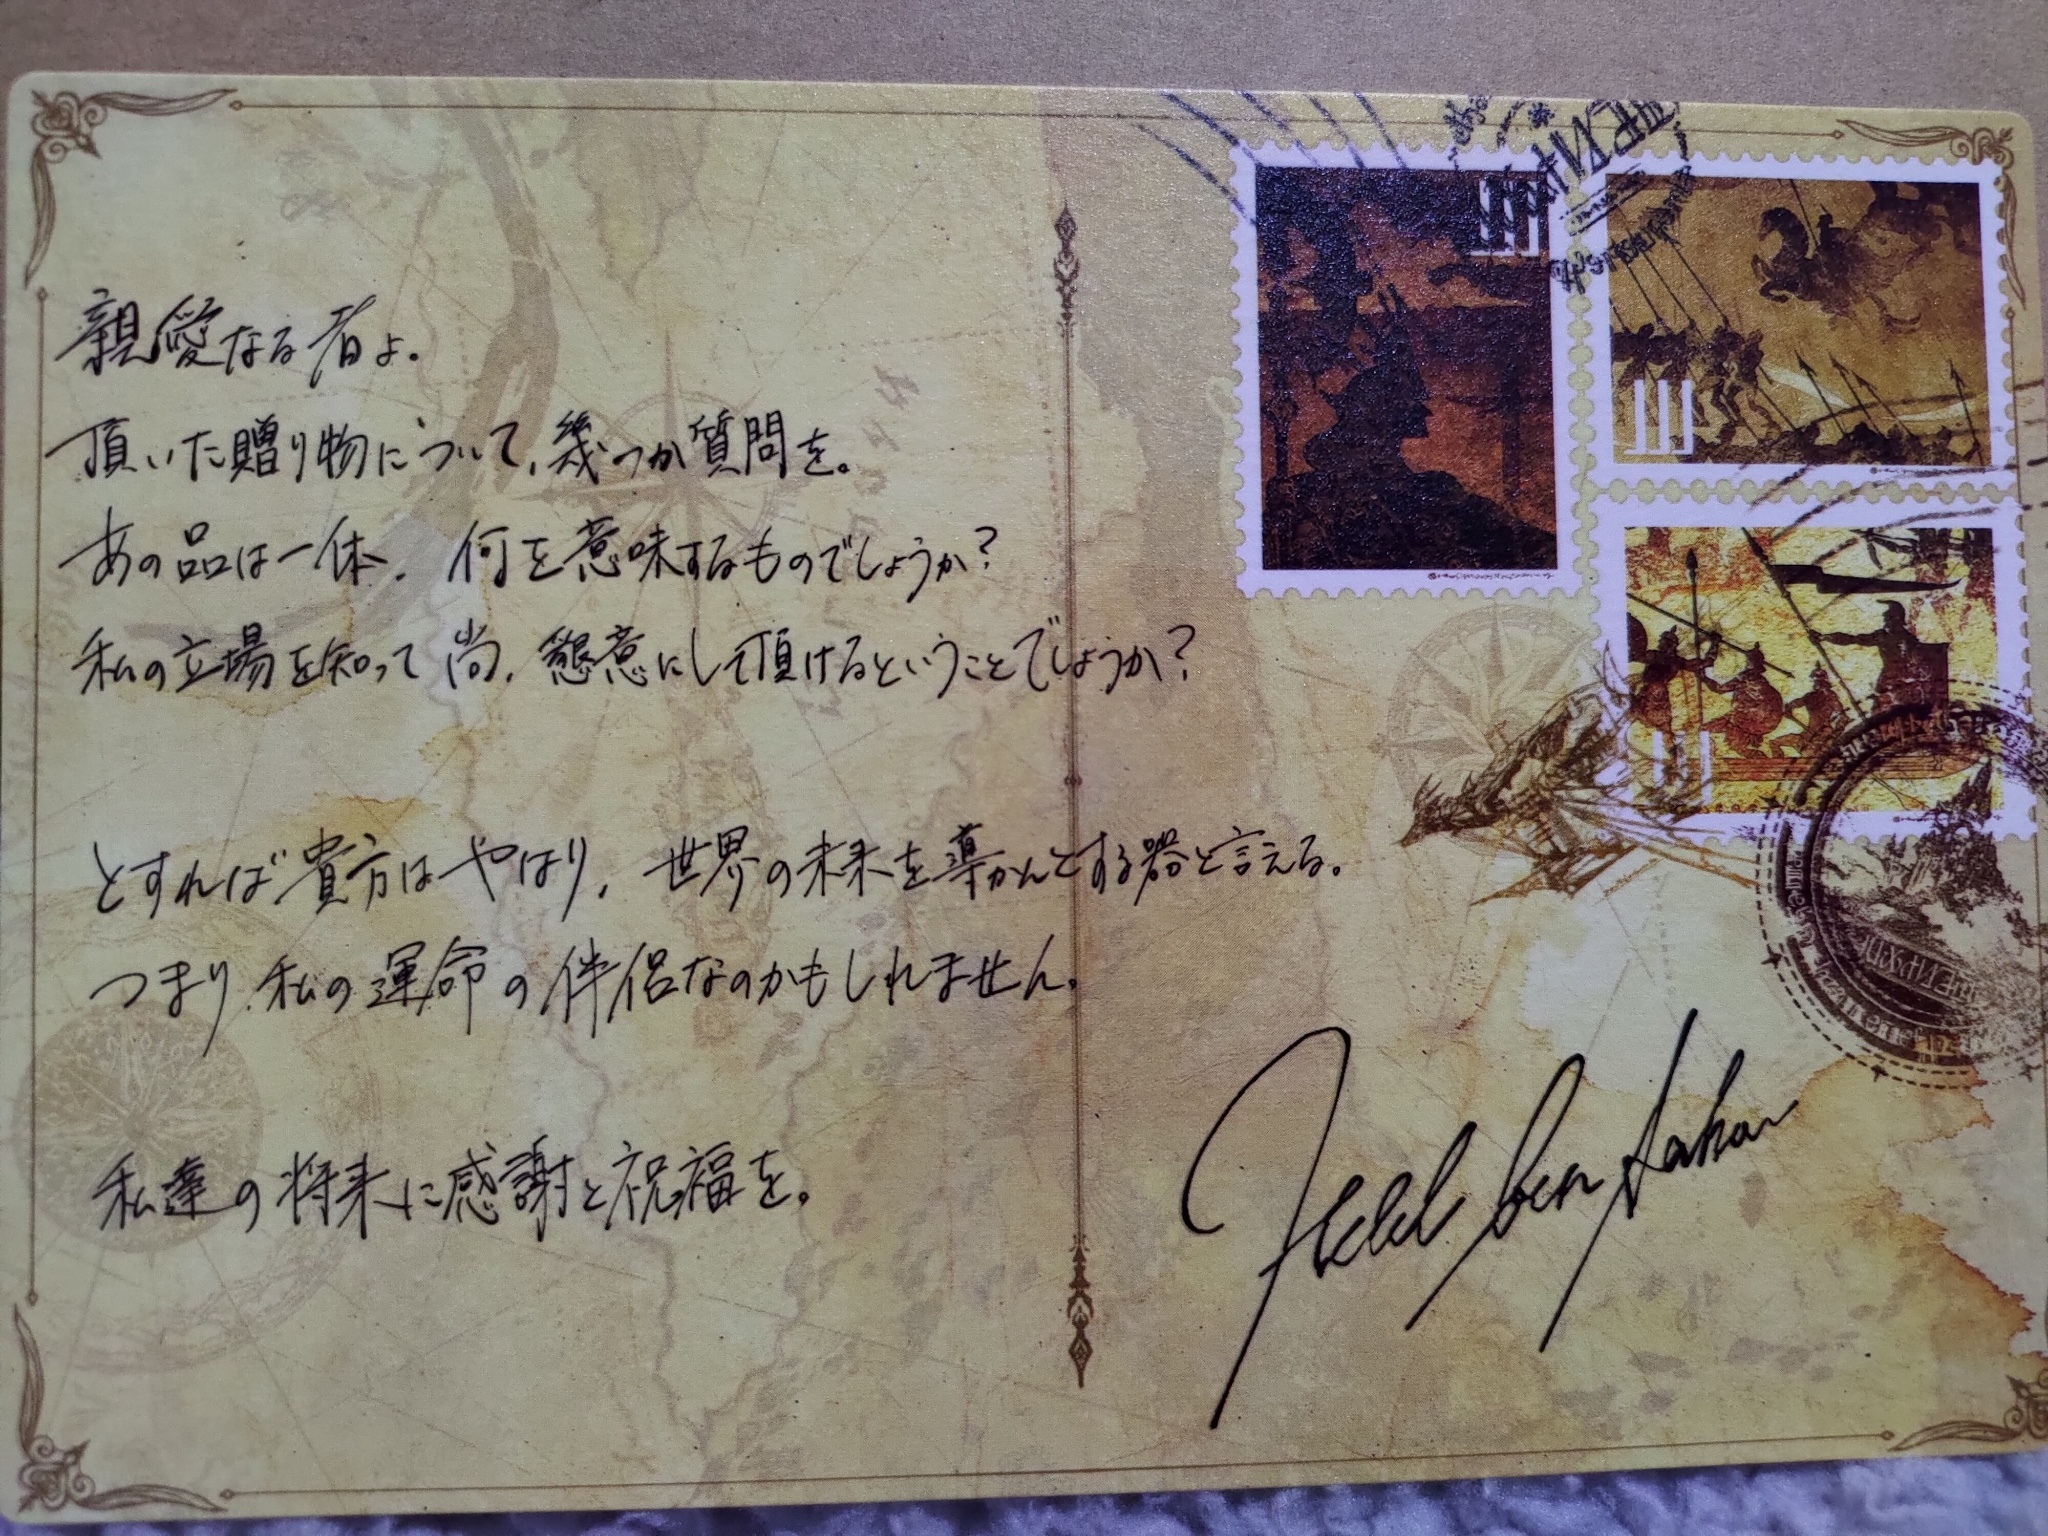 親愛なる者よ.
頂いた贈り物について、幾つか質問を。
あの品は一体、何を意味するものでしょうか?
私の立場を知って尚、懇意にして頂けるということでしょうか?
とすれば貴方はやはり、世界の未来を導かんとする器と言える。
つまり、私の運命の伴侶なのかもしれません。
私達の将来に感謝と祝福を。